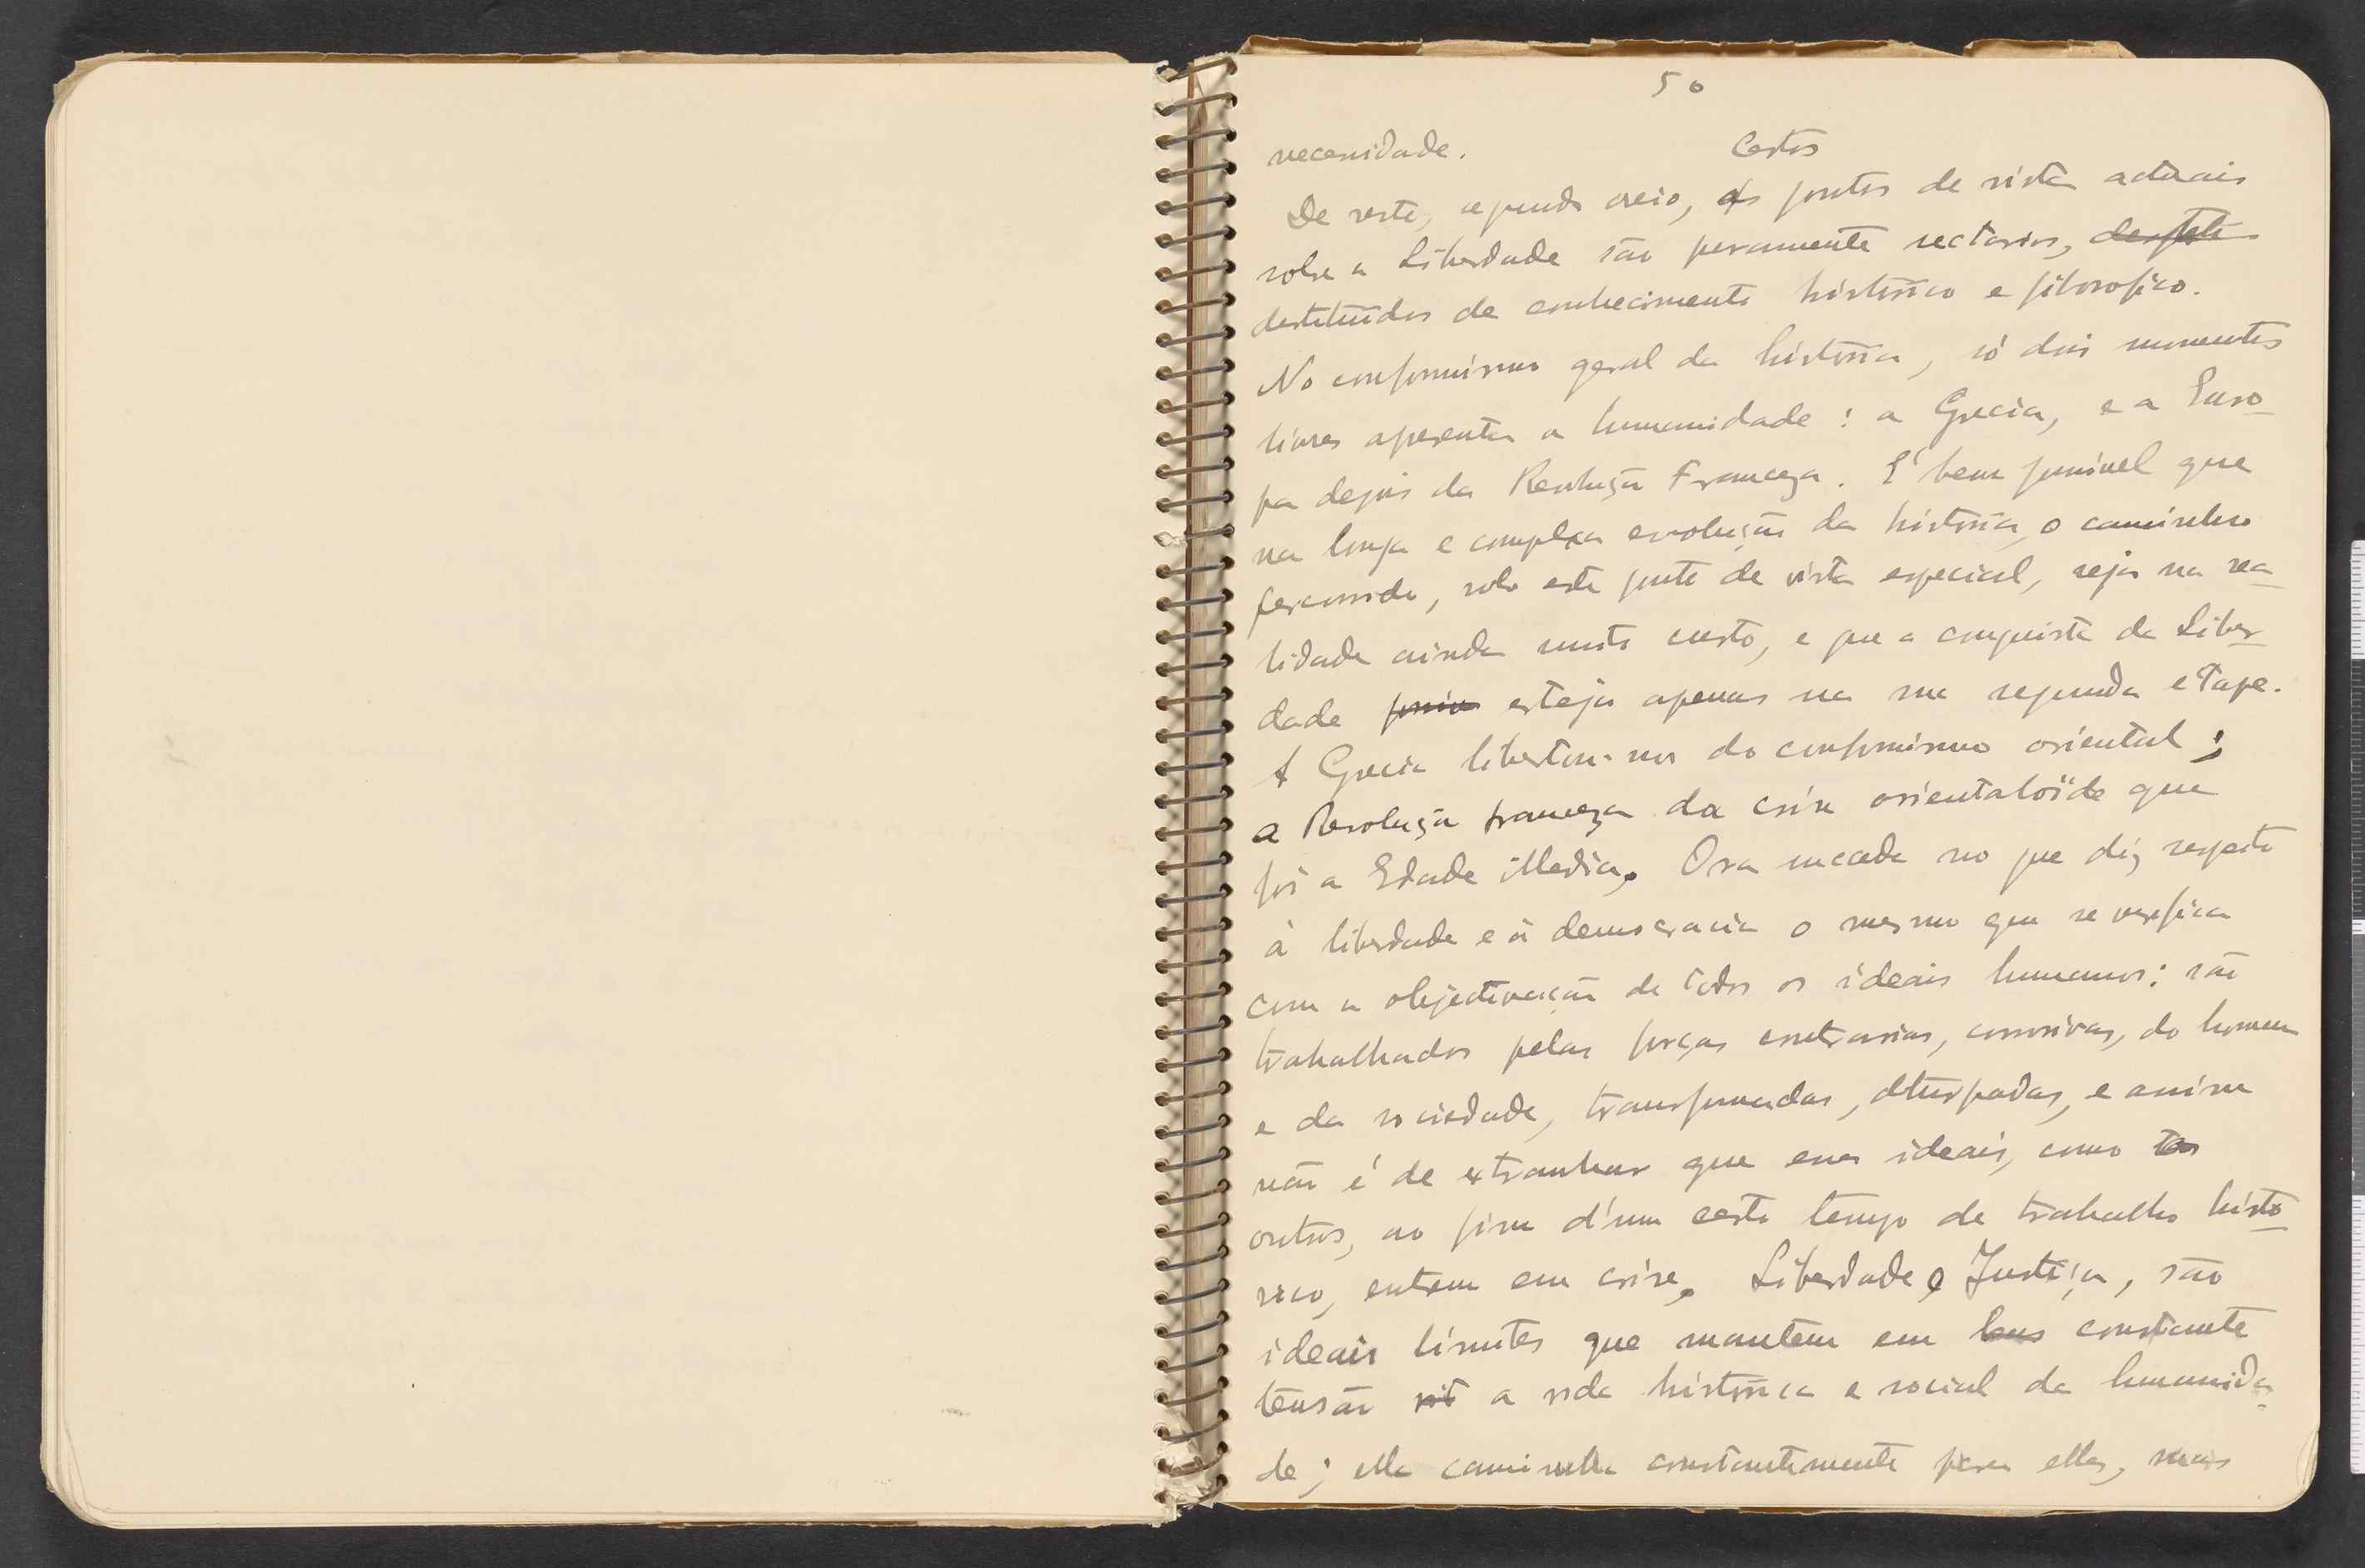 50
necessidade.
Certos
De resto, segundo creio, os pontos de vista actuais
sobre a Liberdade são puramente sectarios,
destituídos de conhecimento histórico e filosofico.
No conformismo geral da história, só dois momentos
livres apresenta a humanidade: a Grecia, e a Euro-
pa depois da Revolução Franceza. É bem possivel que
na longa e complexa evolução da história, o caminho
percorrido, sob este ponto de vista especial, seja na rea-
lidade ainda muito curto, e que a conquista da Liber-
dade esteja apenas na sua segunda etape.
A Grecia libertou-nos do conformismo oriental;
a Revolução franceza da crise orientaloïde que
foi a Edade Media. Ora sucede no que diz respeito
à liberdade e á democracia o mesmo que se verifica
com a objectivação de todos os ideais humanos: são
trabalhados pelas forças contrarias, corrosivas, do homem
e da sociedade, transformadas, deturpadas, e assim
não é de extranhar que esses ideais, como
outros, ao fim d'um certo tempo de trabalho histo-
rico, entrem em crise. Liberdade e Justiça, são
ideais limites que mantem em constante
tensão a vida histórica e social da humanida-
de; ella caminha constantemente para elles, mas